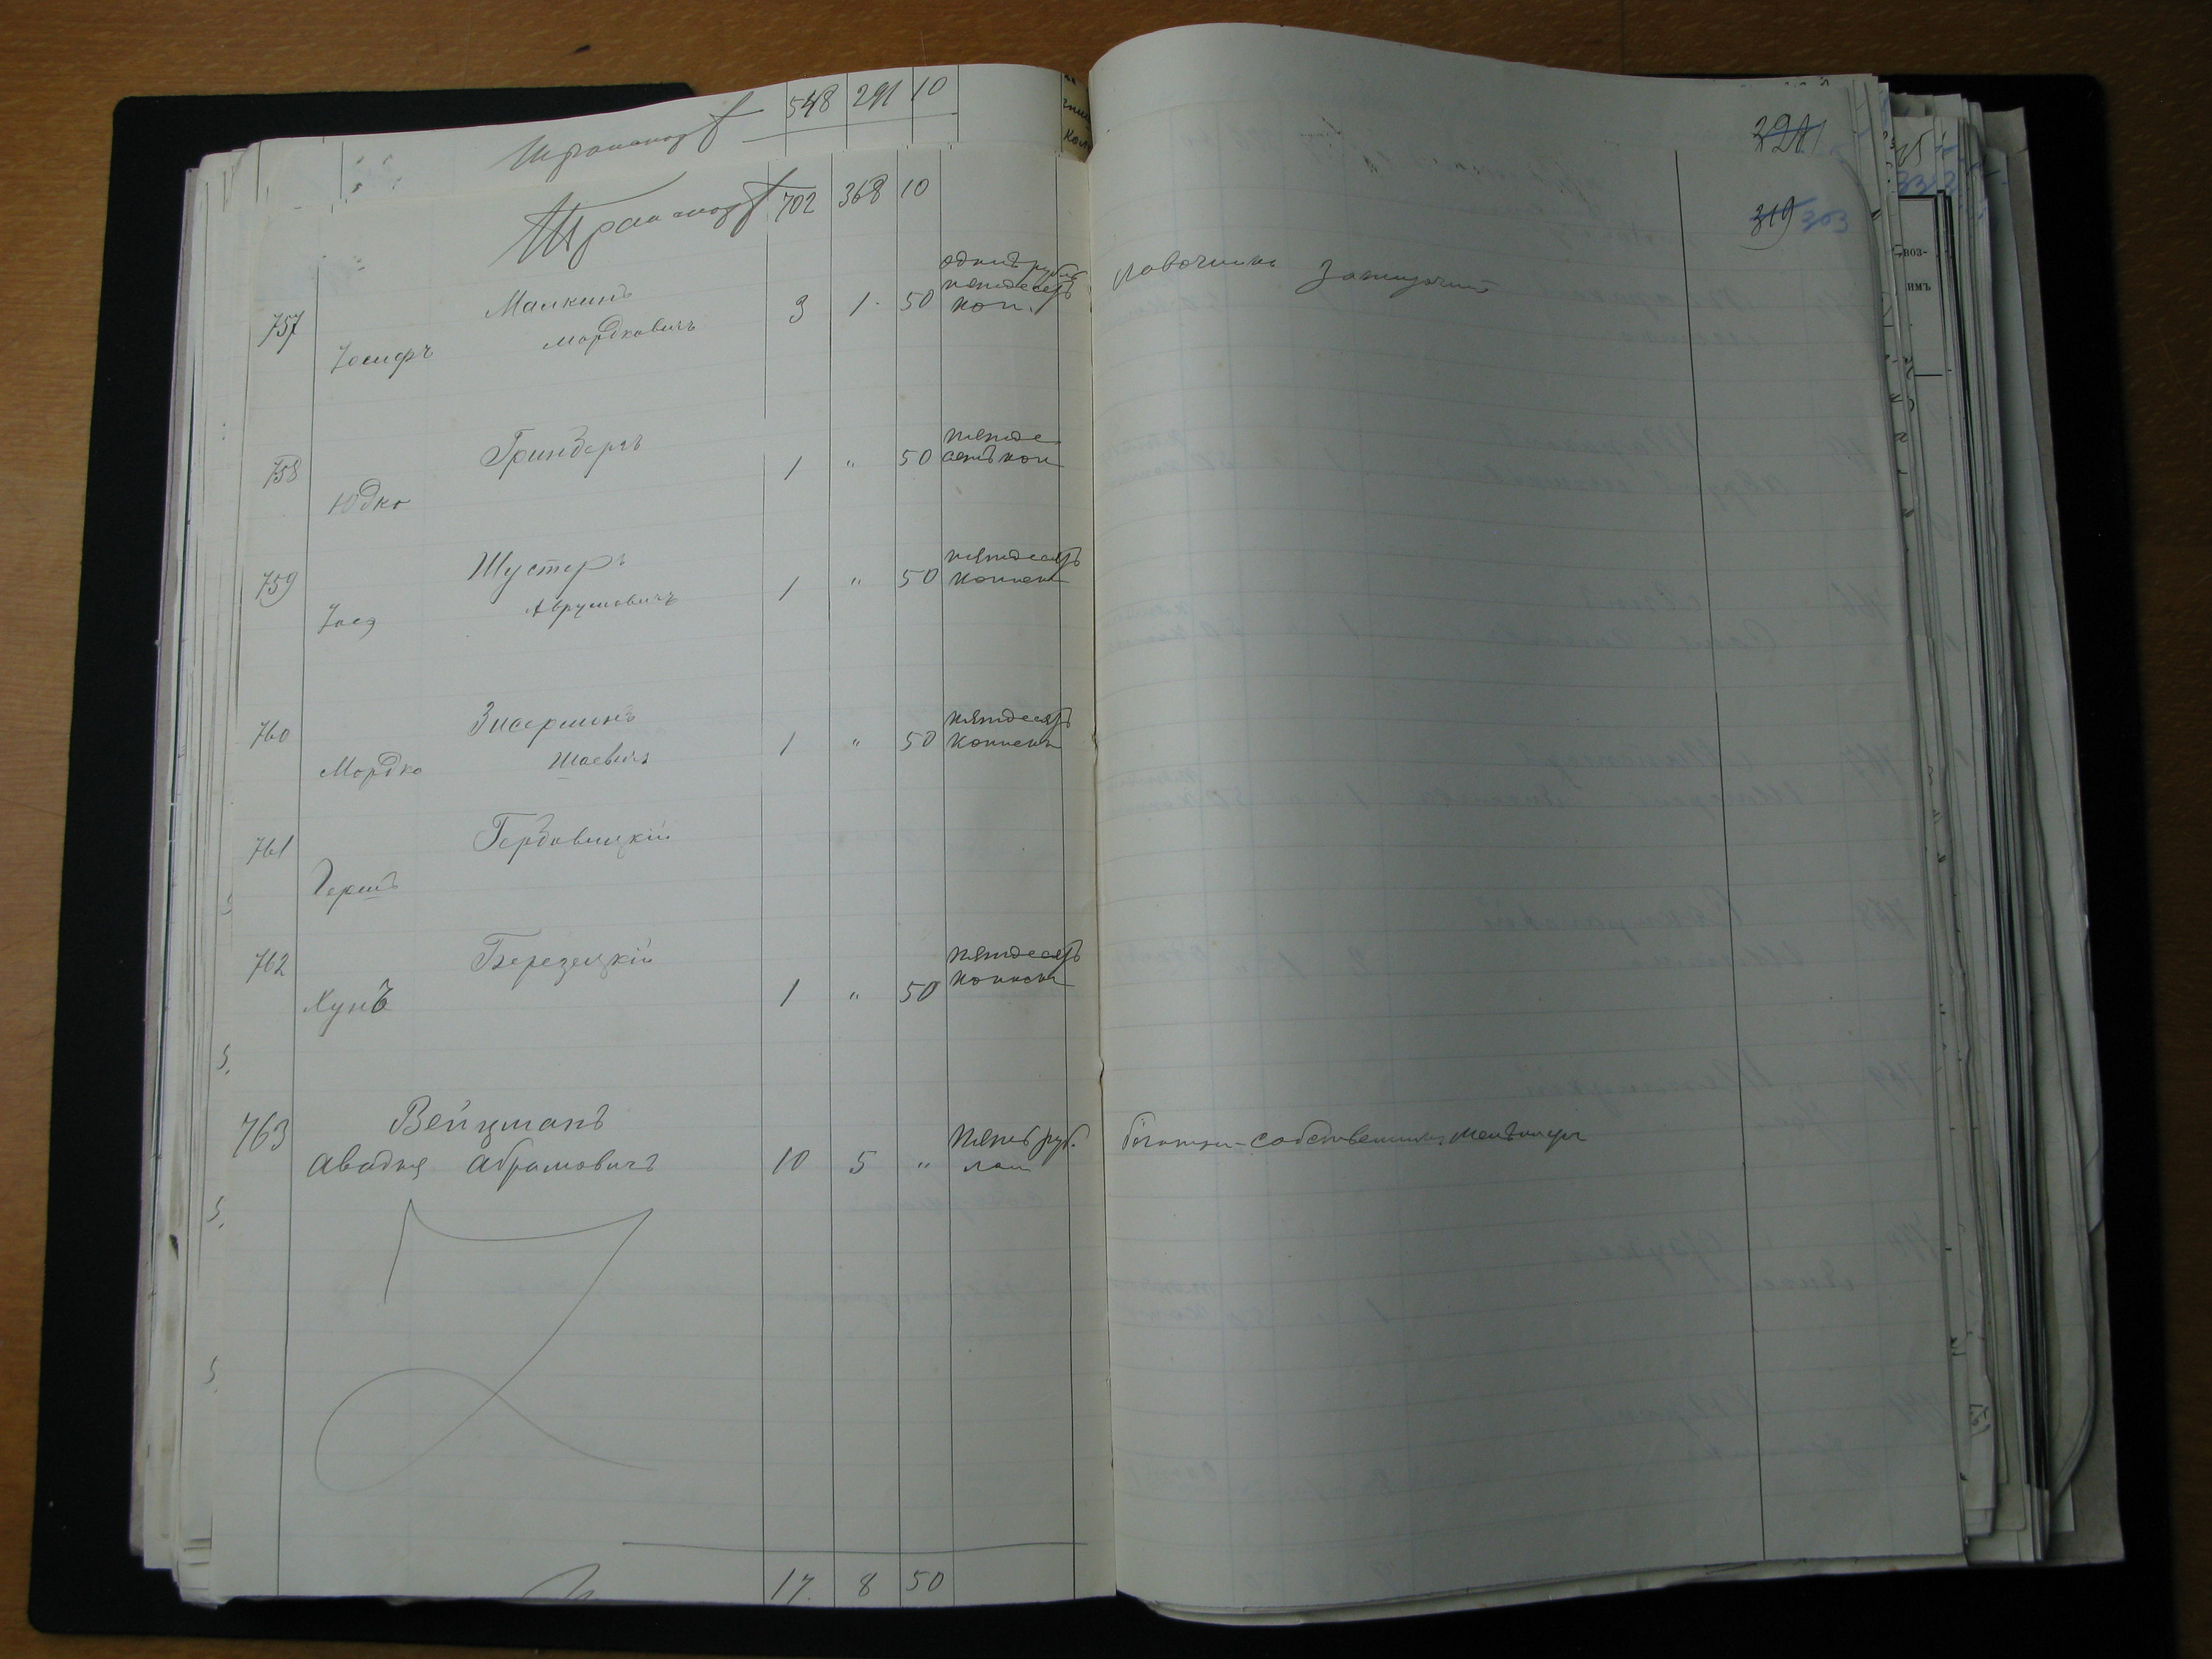 Транспортъ 548 291 10
Транспортъ 702 368 10
291
319 303
757 Малкинъ
Іосифъ Мордковичъ 3 1 50 одинъ рубль пятьдесятъ коп. лавочникъ зажиточный
758 Гринбергъ
Юдко 1 " 50 пятьде
сятъ коп
759 Шустеръ
Іось Аврумовичъ 1 " 50 пятьдесятъ
копеекъ
760 Зисерманъ
Мордко Шаевичъ 1 " 50 пятьдесятъ
копеекъ
761 Гербовицкій
Гершъ
762 Березецкій
Хунъ 1 " 50 пятьдесятъ
копеекъ
763 Вейцманъ
Авадия Абрамовичъ 10 5 " пять руб.
богатый-собственникъ
17 8 50